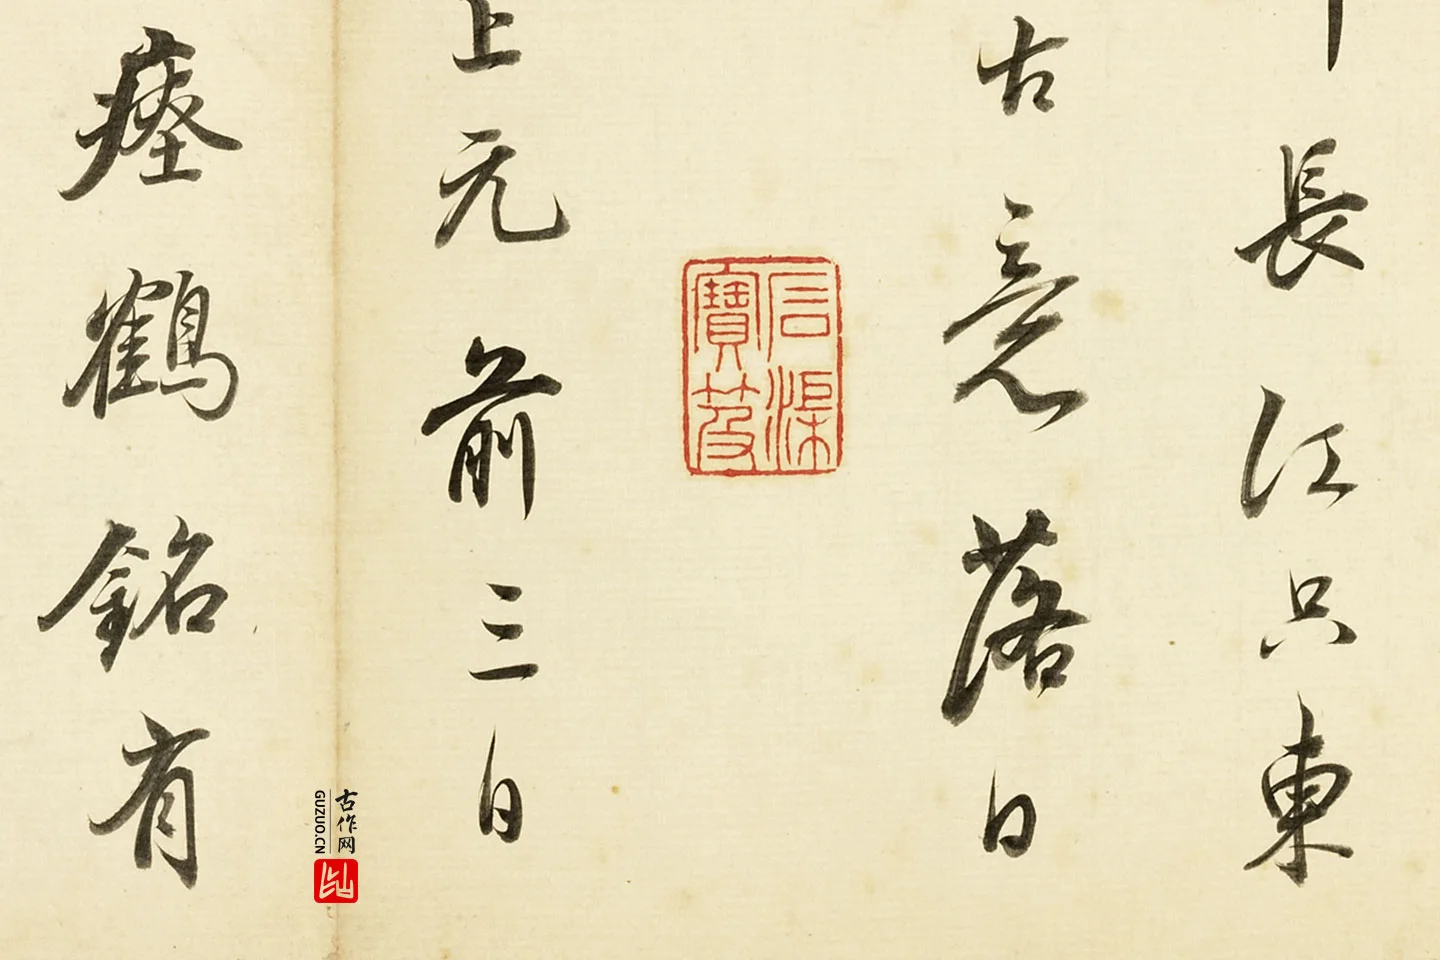 長江只東
古意落日
石渠
寶笈
上元前三日
瘞鶴銘有
古作网
GUZUO.CN